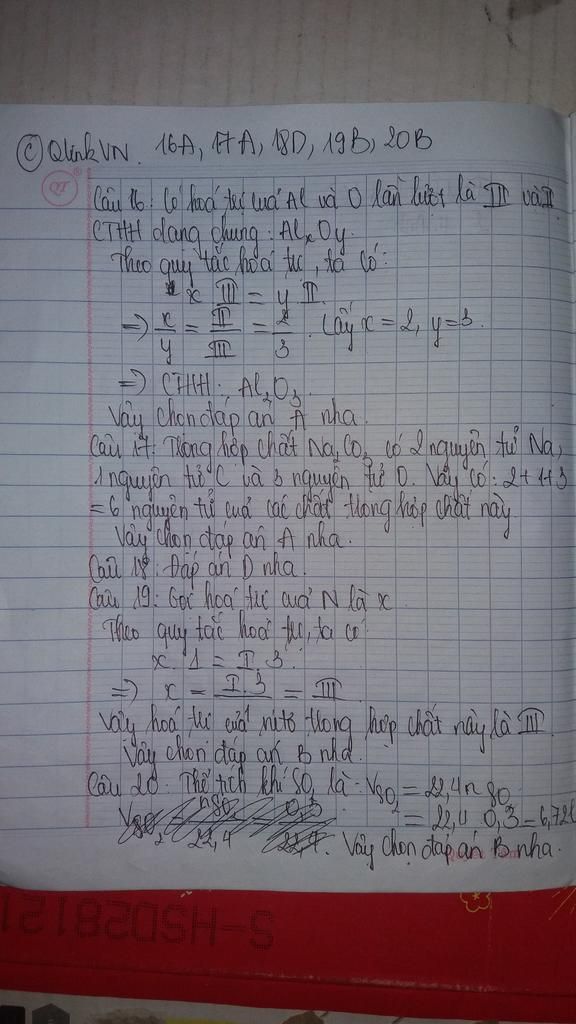 © QlinkVN. 16A, 17A, 18D, 19B, 20B
QT
Câu 16: Có hoá trị cuả Al và O lần lượt là III và II
CTHH dạng chung: AlxOy.
Theo quy tắc hoá trị, ta có:
x III = y II
=> x/y = II/III = 2/3. Lấy x = 2, y = 3.
=> CTHH: Al₂O₃.
Vậy chọn đáp án A nha.
Câu 17: Trong hợp chất Na₂CO₃ có 2 nguyên tử Na,
1 nguyên tử C và 3 nguyên tử O. Vậy có: 2+1+3
= 6 nguyên tử cuả các chất trong hợp chất này
Vậy chọn đáp án A nha.
Câu 18: Đáp án D nha.
Câu 19: Gọi hoá trị cuả N là x
Theo quy tắc hoá trị, ta có
x. 1 = I. 3
=> x = I.3/1 = III
Vậy hoá trị cuả nitơ trong hợp chất này là III
Vậy chọn đáp án B nha.
Câu 20: Thể tích khí SO₂ là: VSO₂ = 22,4n SO₂
= 22,4 0,3 = 6,72l
Vậy chọn đáp án B nha.
S-HSD28121